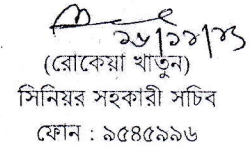 ২৮/১১/২১
(রোকেয়া খাতুন)
সিনিয়র সহকারী সচিব
ফোন : ৯৫৪৫৯৯৬